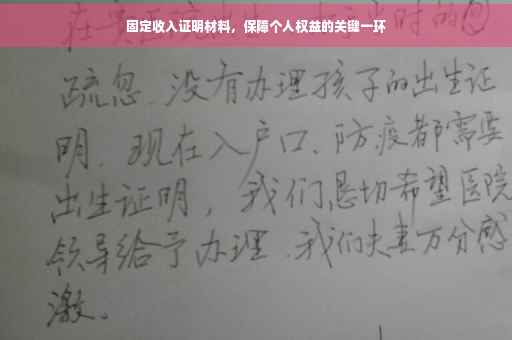 固定收入证明材料，保障个人权益的关键一环
疏忽.没有办理孩子的出生证
明.现在入户口、防疫都需要
出生证明，我们恳切希望医院
领导给予办理.我们夫妻万分感
激。